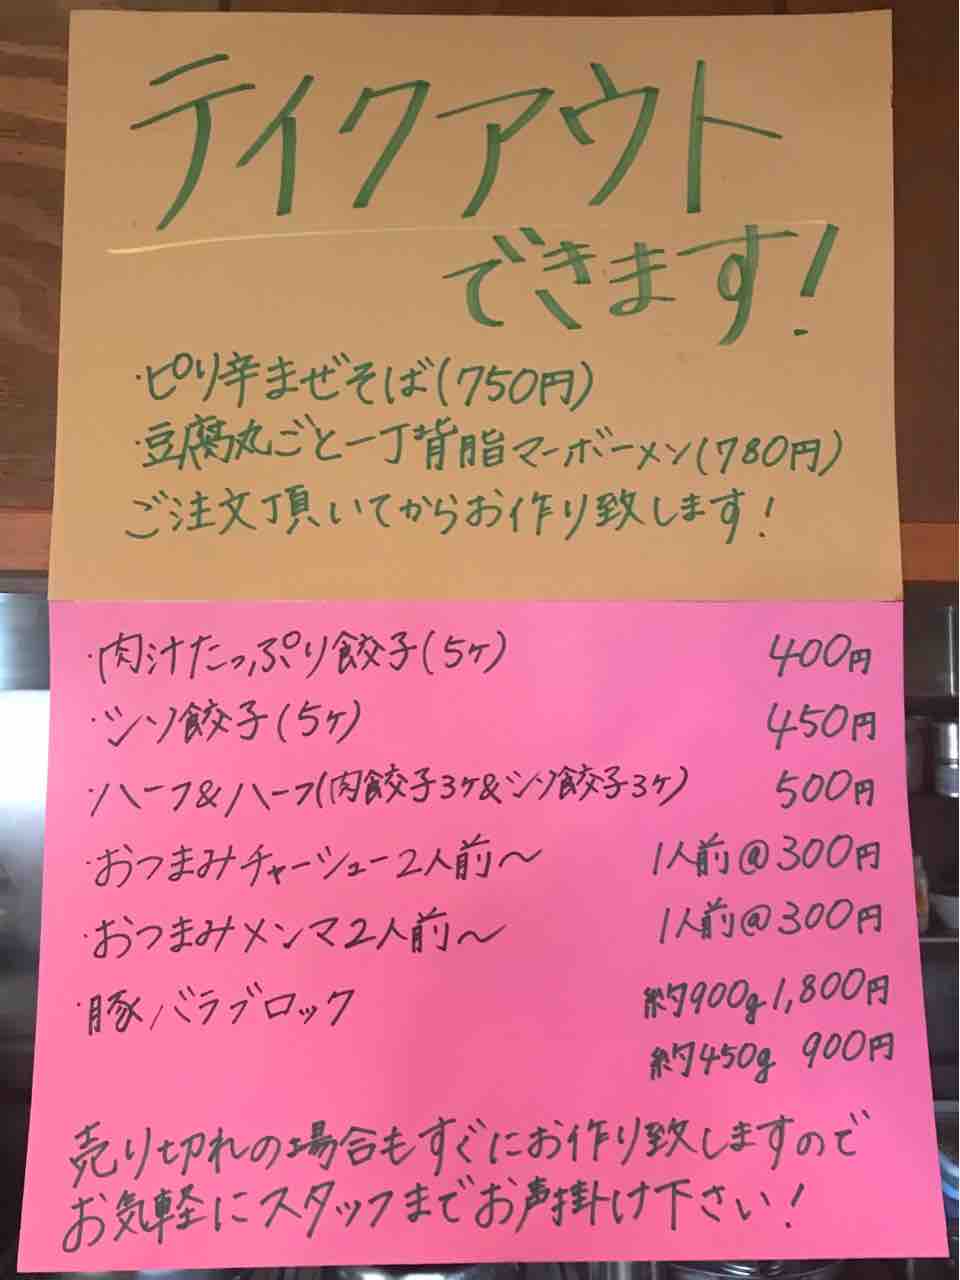 テイクアウト
できます!
・ピリ辛まぜそば(750円)
・豆腐丸ごと一丁背脂マーボーメン(780円)
ご注文頂いてからお作り致します!
・肉汁たっぷり餃子(5ケ) 400円
・シソ餃子(5ケ) 450円
・ハーフ&ハーフ(肉餃子3ケ&シソ餃子3ケ) 500円
・おつまみチャーシュー2人前〜 1人前@300円
・おつまみメンマ2人前〜 1人前@300円
・豚バラブロック 約900g 1,800円
約450g 900円
売り切れの場合もすぐにお作り致しますので
お気軽にスタッフまでお声掛け下さい!